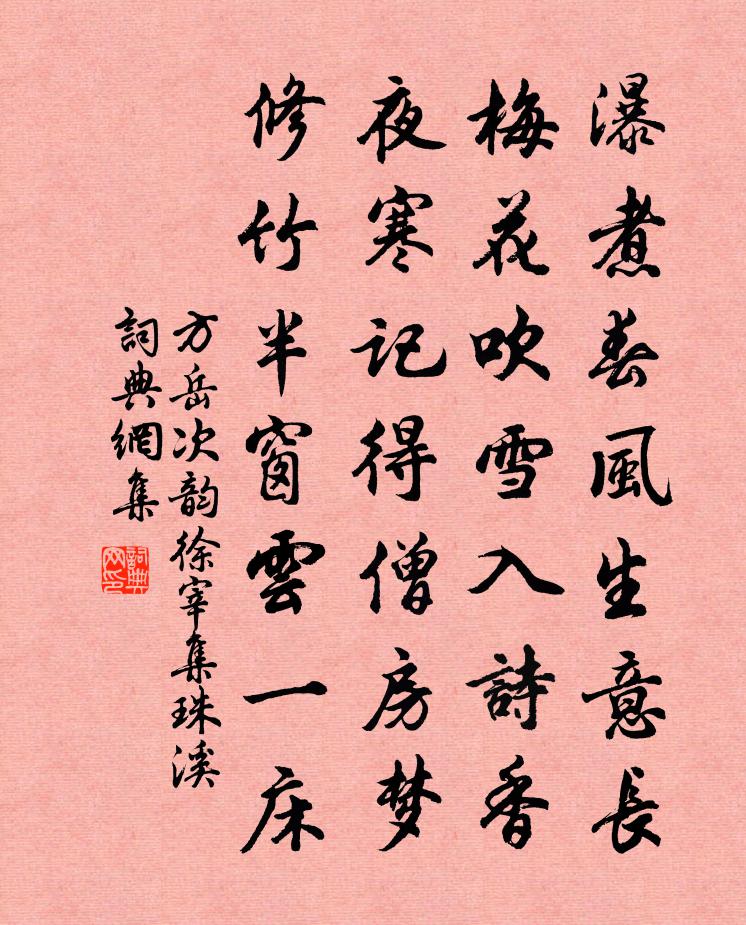 瀑煮春風生意長
梅花吹雪入詩香
夜寒記得僧房梦
修竹半窗雲一床
方岳次韵徐宰集珠溪
詞典網集
詞典网印